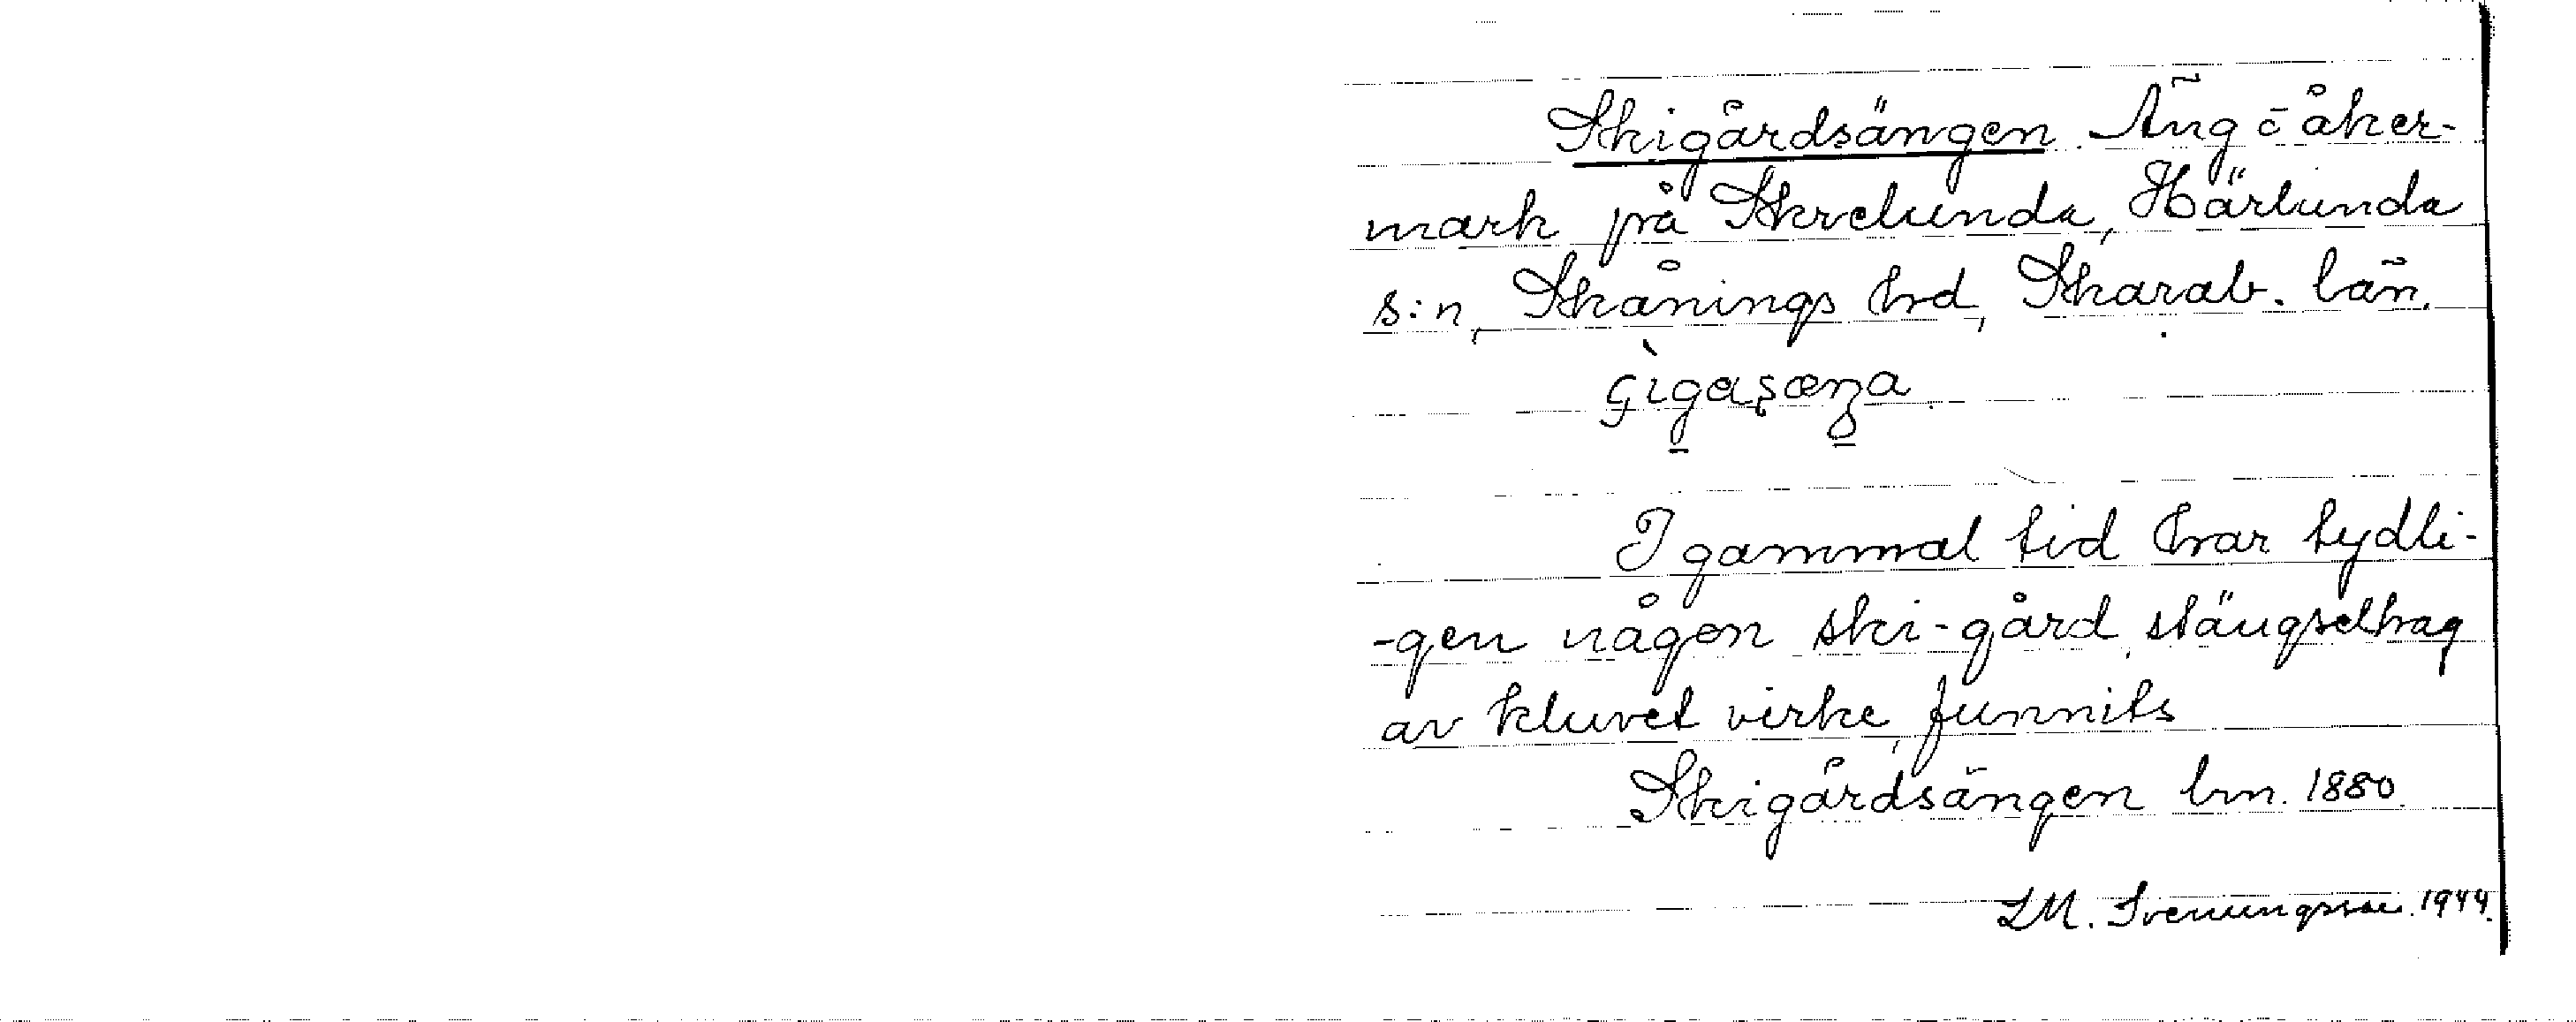 Skigårdsängen. Äng o åker-
mark på Skrelunda, Härlunda
s:n, Skånings hrd, Skarab. län.
I gammal tid har tydli-
-gen någon ski-gård, stängselhag
av kluvet virke, funnits
Skigårdsängen lm. 1880.
LM. Svenungsson. 1944.